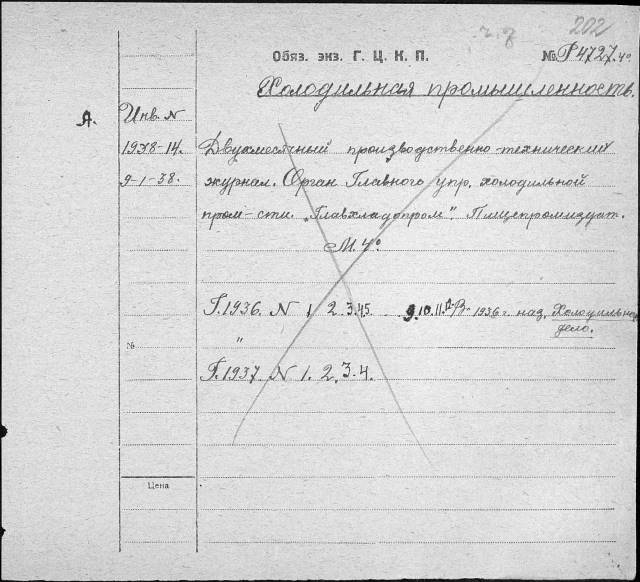 202
Обяз. экз. Г. Ц. К. П.
№ Г 4727.4°
Холодильная промышленность.
А.
Инв. N
1978-14.
9-1-38.
Двухмесячный производственно-технический
журнал. Орган Главного упр. холодильной
пром-сти. „Главхладпром". Пищепромиздат.
М. 4°
Г. 1936. N 1. 2. 3. 45 9. 10. 11. 1936 г. наз. Холодильное
дело.
№
"
Г. 1937. N 1. 2. 3. 4.
Цена